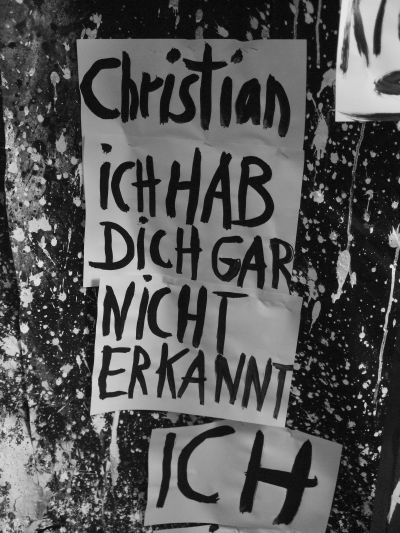 Christian
iCH HAB
DiCH GAR
NiCHT
ERKANNT
ICH